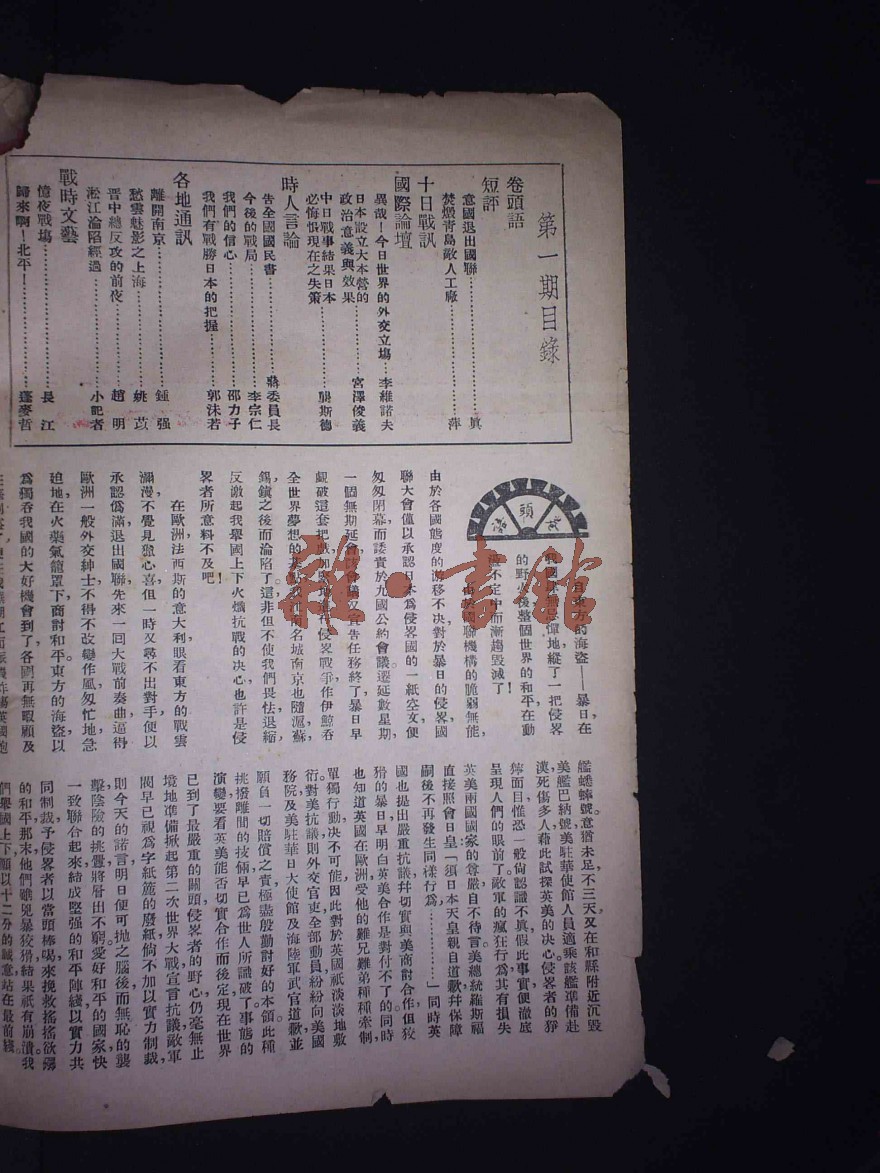 第一期目錄
卷頭語
短評
意國退出國聯……………………眞
焚燬青島敵人工廠………………萍
十日戰訊
國際論壇
異哉！今日世界的外交立場…李維諾夫
日本設立大本營的
政治意義與效果……………宮澤俊義
中日戰事結果日本
必悔恨現在之失策……………龔斯德
時人言論
告全國國民書……………蔣委員長
今後的戰局………………李宗仁
我們的信心………………邵力子
我們有戰勝日本的把握……郭沫若
各地通訊
離開南京……………………鍾强
愁雲魅影之上海……………姚苡
晋中總反攻的前夜…………趙明
淞江淪陷經過………………小記者
戰時文藝
億夜戰塲……………………長江
歸來啊！北平！……………蓬麥哲
卷頭語
自東方的海盜——暴日，在
我國
憚地縱了一把侵畧
的野火後，整個世界的和平，在動
不定中而漸趨毀滅了！
由於國聯機構的脆弱無能，
由於各國態度的游移不决，對於暴日的侵畧，國
聯大會僅以承認日本爲侵畧國的一紙空文，便
匆匆閉幕，而諉責於九國公約會議。遷延數星期，
一個無期延會，
又宣告任務終了，暴日早
覷破這套把戲，
侵畧戰爭，作伊鯨吞
全世界夢想的
名城南京也隨滬，蘇，
錫，鎮之後而淪陷了。這非但不使我們畏怯退縮，
反激起我舉國上下火熾抗戰的决心，也許是侵
畧者所意料不及吧！
在歐洲，法西斯的意大利，眼看東方的戰雲
瀰漫，不覺見獵心喜，但一時又尋不出對手，便以
承認僞滿退出國聯，先來一回大戰前奏曲，逼得
歐洲一般外交紳士，不得不改變作風，匆忙地，急
迫地，在火藥氣籠罩下商討和平。東方的海盜，以
爲獨吞我國的大好機會到了，各國再無暇顧及
艦蟋蟀號，意猶未足，不三天，又在和縣附近沉毀
美艦巴納號，美駐華使館人員適乘該艦準備赴
漢，死傷多人，藉此試探英美的决心。侵畧者的猙
獰面目，惟恐一般尙認識不眞，假此事實，便澈底
呈現人們的眼前了。敵軍的瘋狂行爲，其有損失
英美兩國國家的尊嚴，自不待言。美總統羅斯福
直接照會日皇「須日本天皇親自道歉，幷保障
嗣後不再發生同樣行爲，…………」同時英
國也提出嚴重抗議，幷切實與美商討合作，但狡
猾的暴日，早明白英美合作是對付不了的，同時
也知道英國在歐洲受他的難兄難弟種種牽制，
單獨行動，决不可能，因此對於英國祇淡淡地敷
衍，對美抗議則外交官吏全部動員，紛紛向美國
務院及美駐華日大使館及海陸軍武官道歉，並
願負一切賠償之責，極盡殷勤討好的本領，此種
挑撥離間的技倆，早已爲世人所識破了。事態的
演變，要看英美能否切實合作而後定，現在世界
已到了最嚴重的關頭，侵畧者的野心，仍毫無止
境地準備掀起第二次世界大戰，宣言抗議，敵軍
閥早已視爲字紙簏的廢紙，倘不加以實力制裁，
則今天的諾言，明日便可抛之腦後，而無恥的襲
擊，陰險的挑釁，將層出不窮，愛好和平的國家，快
一致聯合起來，結成堅强的和平陣綫，以實力共
同制裁，予侵畧者以當頭棒喝，來挽救搖搖欲墮
的和平，那末他們雖兇暴狡猾，結果祇有崩潰。我
們舉國上下，願以十二分的誠意，站在最前綫。
雜·書館